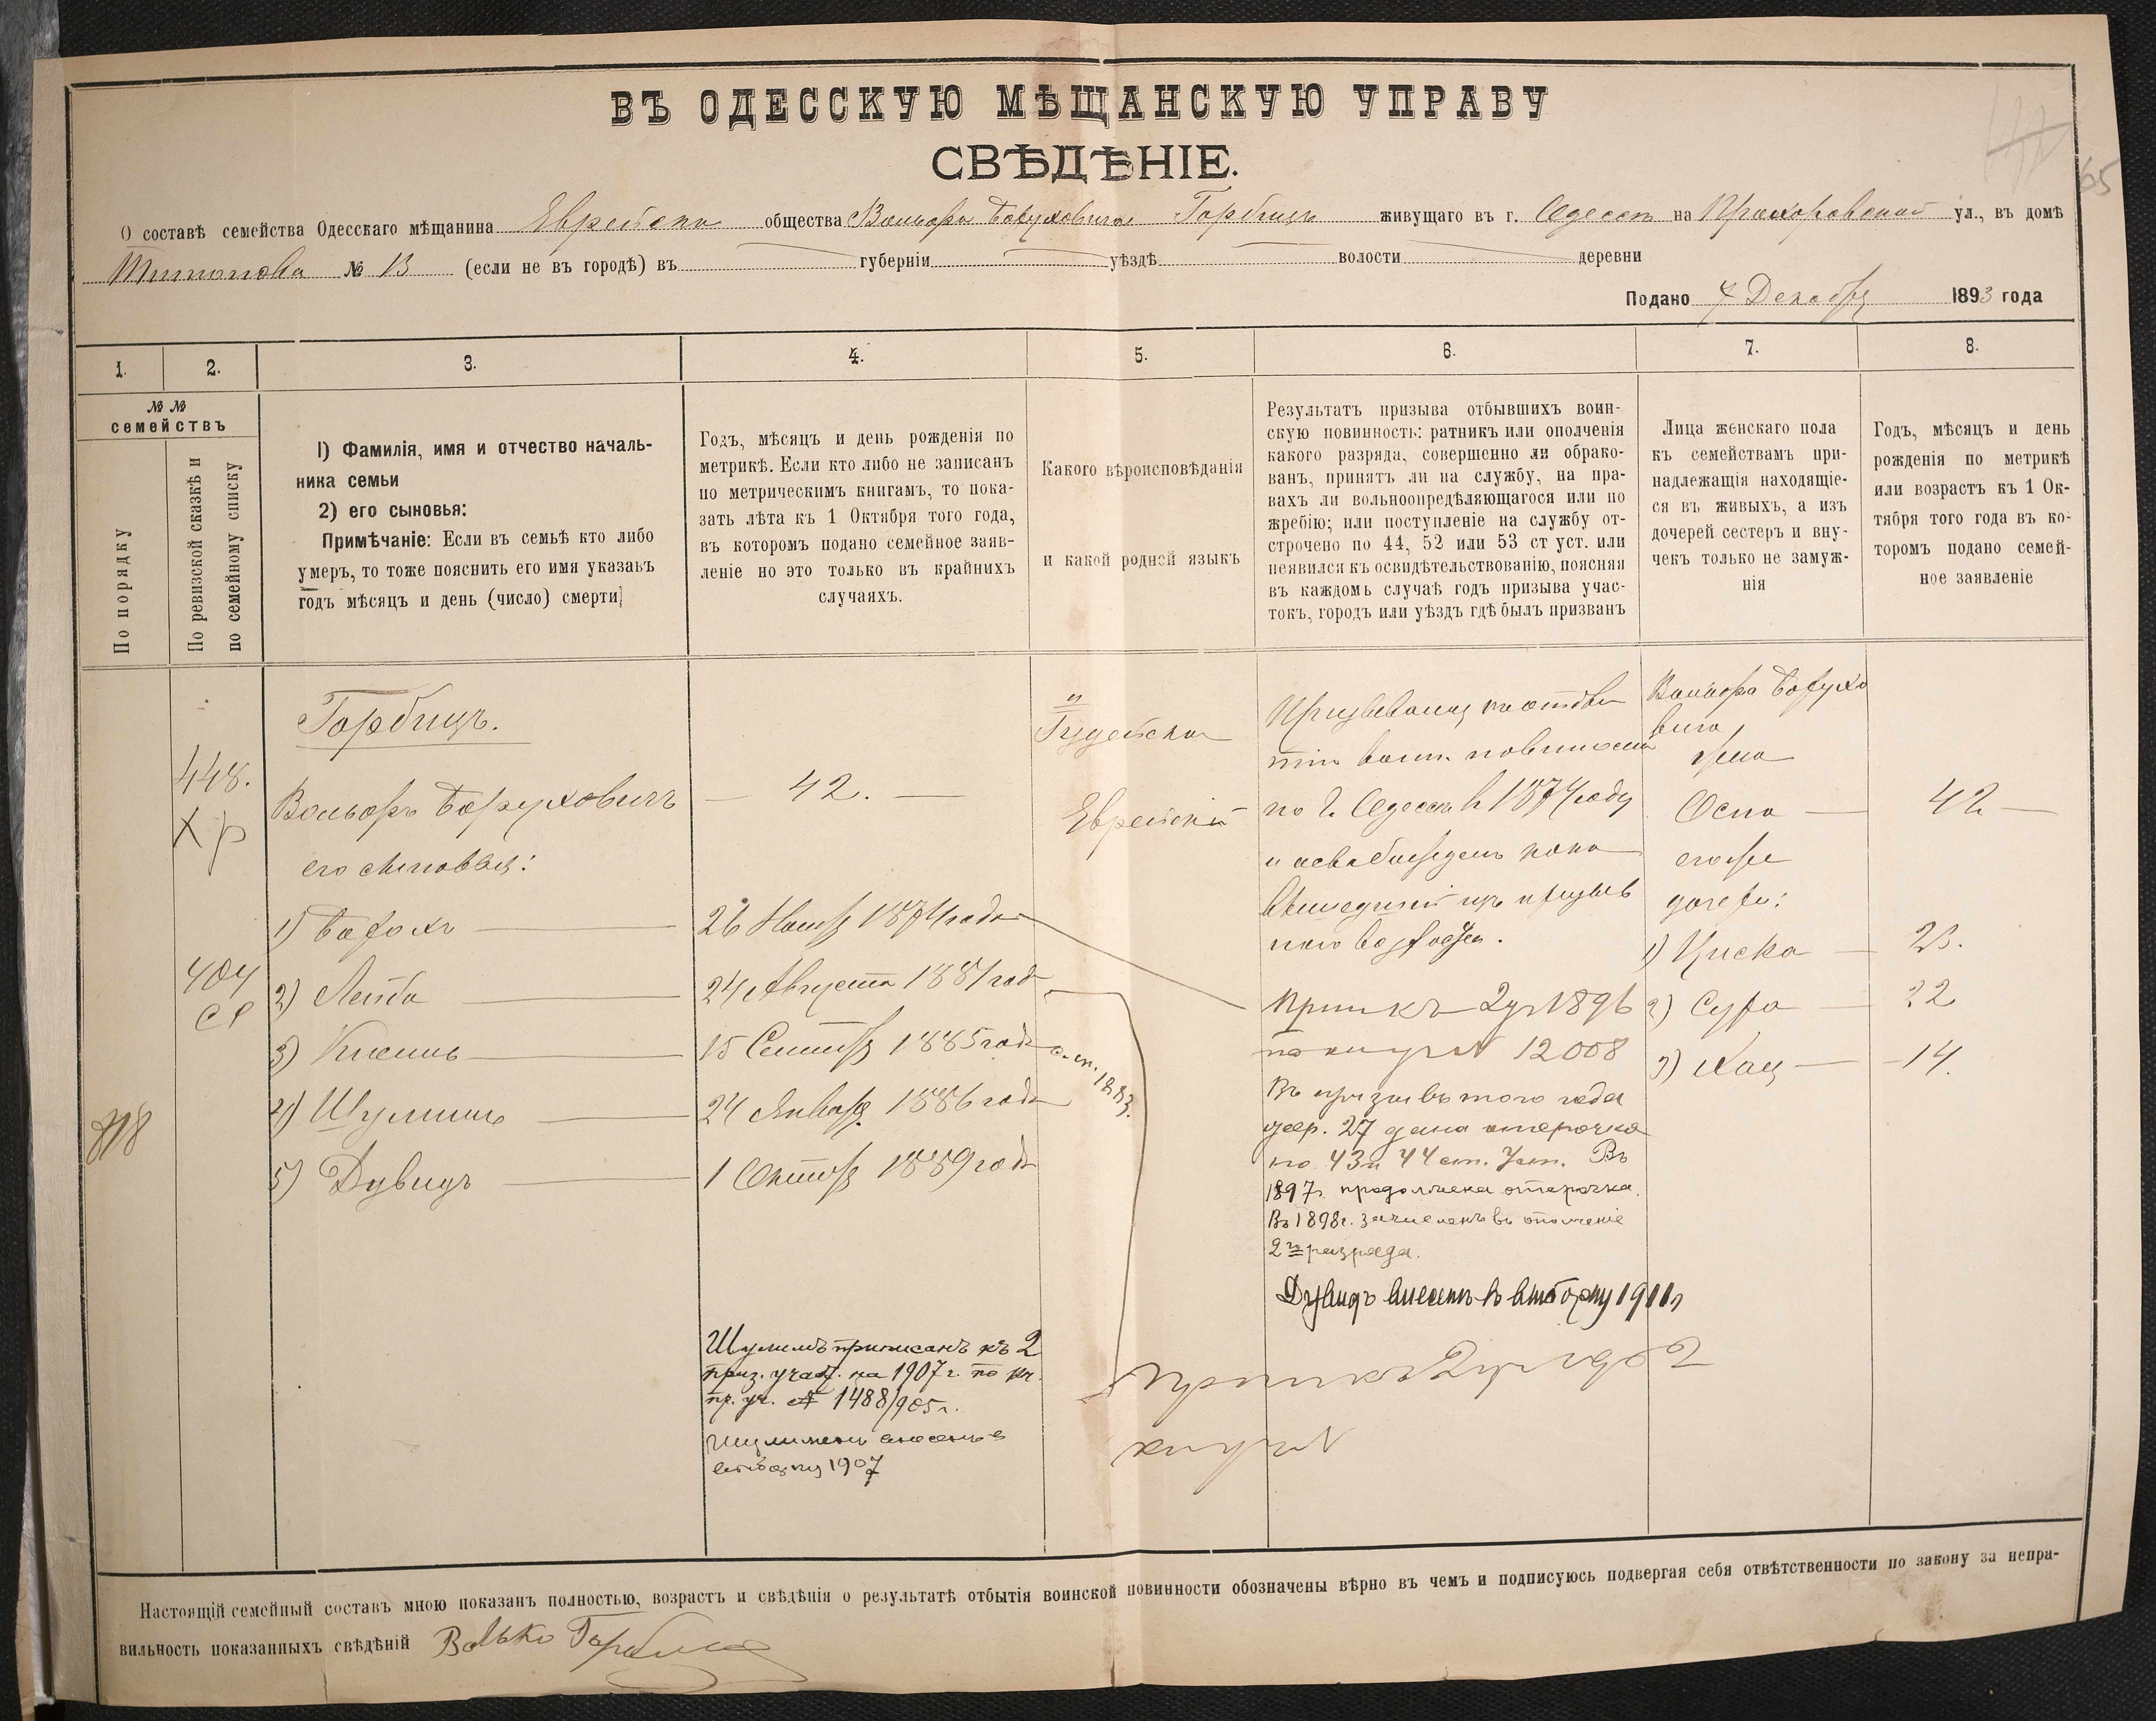 ВЪ ОДЕССКУЮ МѢЩАНСКУЮ УПРАВУ
СВѢДѢНІЕ.
65
О составѣ семейства Одесскаго мѣщанина Еврейскаго общества Вольора Боруховича Горбицъ живущаго въ г. Одессѣ на Прохоровской ул., въ домѣ
№ 13 (если не въ городѣ) въ губерніи уѣздѣ волости деревни
Подано 7 Декабря 1893 года
1. 2. 3. 4. 5. 6. 7. 8.
№ №
семействъ
По порядку
По ревизской сказкѣ и
по семейному списку
1) Фамилія, имя и отчество началь-
ника семьи
2) его сыновья:
Примѣчаніе: Если въ семьѣ кто либо
умеръ, то тоже пояснить его имя указавъ
годъ мѣсяцъ и день (число) смерти
Годъ, мѣсяцъ и день рожденія по
метрикѣ. Если кто либо не записанъ
по метрическимъ книгамъ, то пока-
зать лѣта къ 1 Октября того года,
въ которомъ подано семейное заяв-
леніе но это только въ крайнихъ
случаяхъ.
Какого вѣроисповѣданія
и какой родной языкъ
Результатъ призыва отбывшихъ воин-
скую повинность: ратникъ или ополченія
какого разряда, совершенно ли обрако-
ванъ, принятъ ли на службу, на пра-
вахъ ли вольноопредѣляющагося или по
жребію; или поступленіе на службу от-
строчено по 44, 52 или 53 ст уст. или
неявился къ освидѣтельствованію, поясняя
въ каждомъ случаѣ годъ призыва учас-
токъ, городъ или уѣздъ гдѣ былъ призванъ
Лица женскаго пола
къ семействамъ при-
надлежащія находящіе-
ся въ живыхъ, а изъ
дочерей сестеръ и вну-
чекъ только не замуж-
нія
Годъ, мѣсяцъ и день
рожденія по метрикѣ
или возрастъ къ 1 Ок-
тября того года въ ко-
торомъ подано семей-
ное заявленіе
448.
404
818
Горбицъ.
Вольоръ Боруховичъ
его сыновья:
1) Борохъ
2) Лейба
3)
4) Шулимъ
5) Дувидъ
42.
26 Ноября 1874 года
24 Августа 1881 года
15 Сентября 1885 года
24 Января 1886 года
1 Октября 1889 года
1883.
Шулимъ приписанъ къ 2
приз. участ. на 1907 г. по кн.
пр. уч. № 1488/905 г.
Шулимъ внесенъ в
выборку 1907
Іудейская
Еврейскій
Призывался къ отбы
тію воин. повинности
по г. Одессѣ в 1874 году
и освобожденъ какъ
вышедшій изъ призыв
наго возраста.
Прип къ 2 уч 1896
по книгѣ № 12008
Въ призывъ того года
жер. 27 дана отсрочка
по 43 и 44 ст. Уст. Въ
1897 г. продолжена отсрочка.
Въ 1898 г. зачисленъ въ ополченіе
2го разряда.
Дувидъ внесенъ в выборку 1911 г
Вольора Борухо
вича
жена
Осна
его же
дочери:
1) Циска
2) Сура
3) Хая
42
23.
22
14.
Настоящій семейный составъ мною показанъ полностью, возрастъ и свѣдѣнія о результатѣ отбытія воинской повинности обозначены вѣрно въ чемъ и подписуюсь подвергая себя отвѣтственности по закону за непра-
вильность показанныхъ свѣдѣній Волько Горбиц